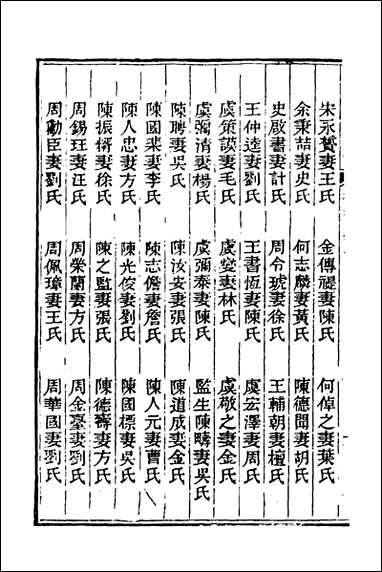 朱永贊妻王氏 金傳禔妻陳氏 何倬之妻葉氏
余秉喆妻史氏 何志麟妻黃氏 陳德聞妻胡氏
史啟書妻計氏 周令琥妻徐氏 王輔朝妻檀氏
王仲逵妻劉氏 王書恆妻陳氏 虞宏澤妻周氏
虞策談妻毛氏 虞變妻林氏 虞敬之妻金氏
虞瀰清妻楊氏 虞彌泰妻陳氏 監生陳疇妻吳氏
陳聘妻吳氏 陳汝安妻張氏 陳道成妻金氏
陳國棐妻李氏 陳志儋妻詹氏 陳人元妻曹氏
陳人忠妻方氏 陳光俊妻劉氏 陳國標妻吳氏
陳振楈妻徐氏 陳之監妻張氏 陳德壽妻方氏
周錫玨妻汪氏 周榮蘭妻方氏 周金臺妻劉氏
周勱臣妻劉氏 周佩璋妻王氏 周華國妻劉氏